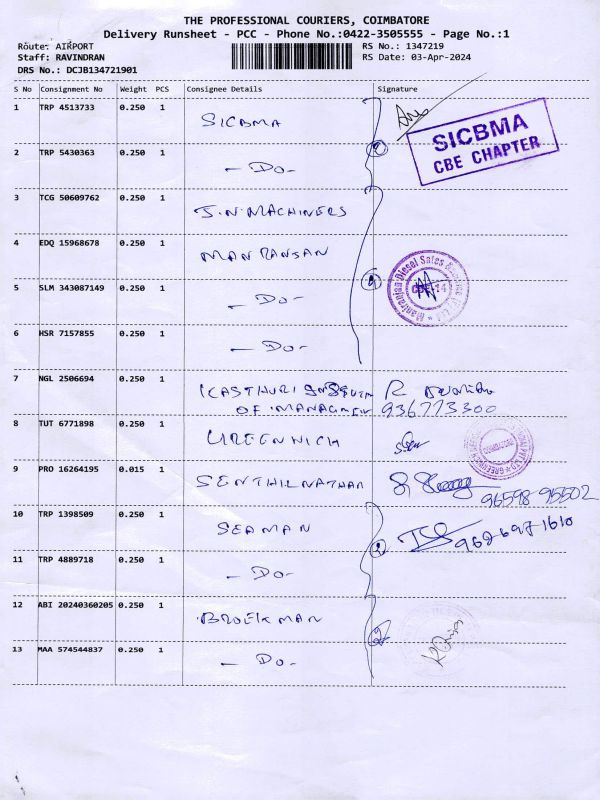 THE PROFESSIONAL COURIERS, COIMBATORE
Delivery Runsheet - PCC - Phone No.:0422-3505555 - Page No.:1
Route: AIRPORT RS No.: 1347219
Staff: RAVINDRAN RS Date: 03-Apr-2024
DRS No.: DCJB134721901
S No Consignment No Weight PCS Consignee Details Signature
1 TRP 4513733 0.250 1 SICBMA
SICBMA
CBE CHAPTER
2 TRP 5430363 0.250 1 - DO -
3 TCG 50609762 0.250 1 J.N. MACHINERS
4 EDQ 15968678 0.250 1
5 SLM 343087149 0.250 1 - DO -
6 HSR 7157855 0.250 1 - DO -
7 NGL 2506694 0.250 1 KASTHURI
OF MANAGMEN 936773300
8 TUT 6771898 0.250 1
9 PRO 16264195 0.015 1 SENTHILNATHAN 96598 95502
10 TRP 1398509 0.250 1 SEAMAN 962697-1610
11 TRP 4889718 0.250 1 - DO -
12 ABI 20240360205 0.250 1 BROEKMAN
13 MAA 574544837 0.250 1 - DO -